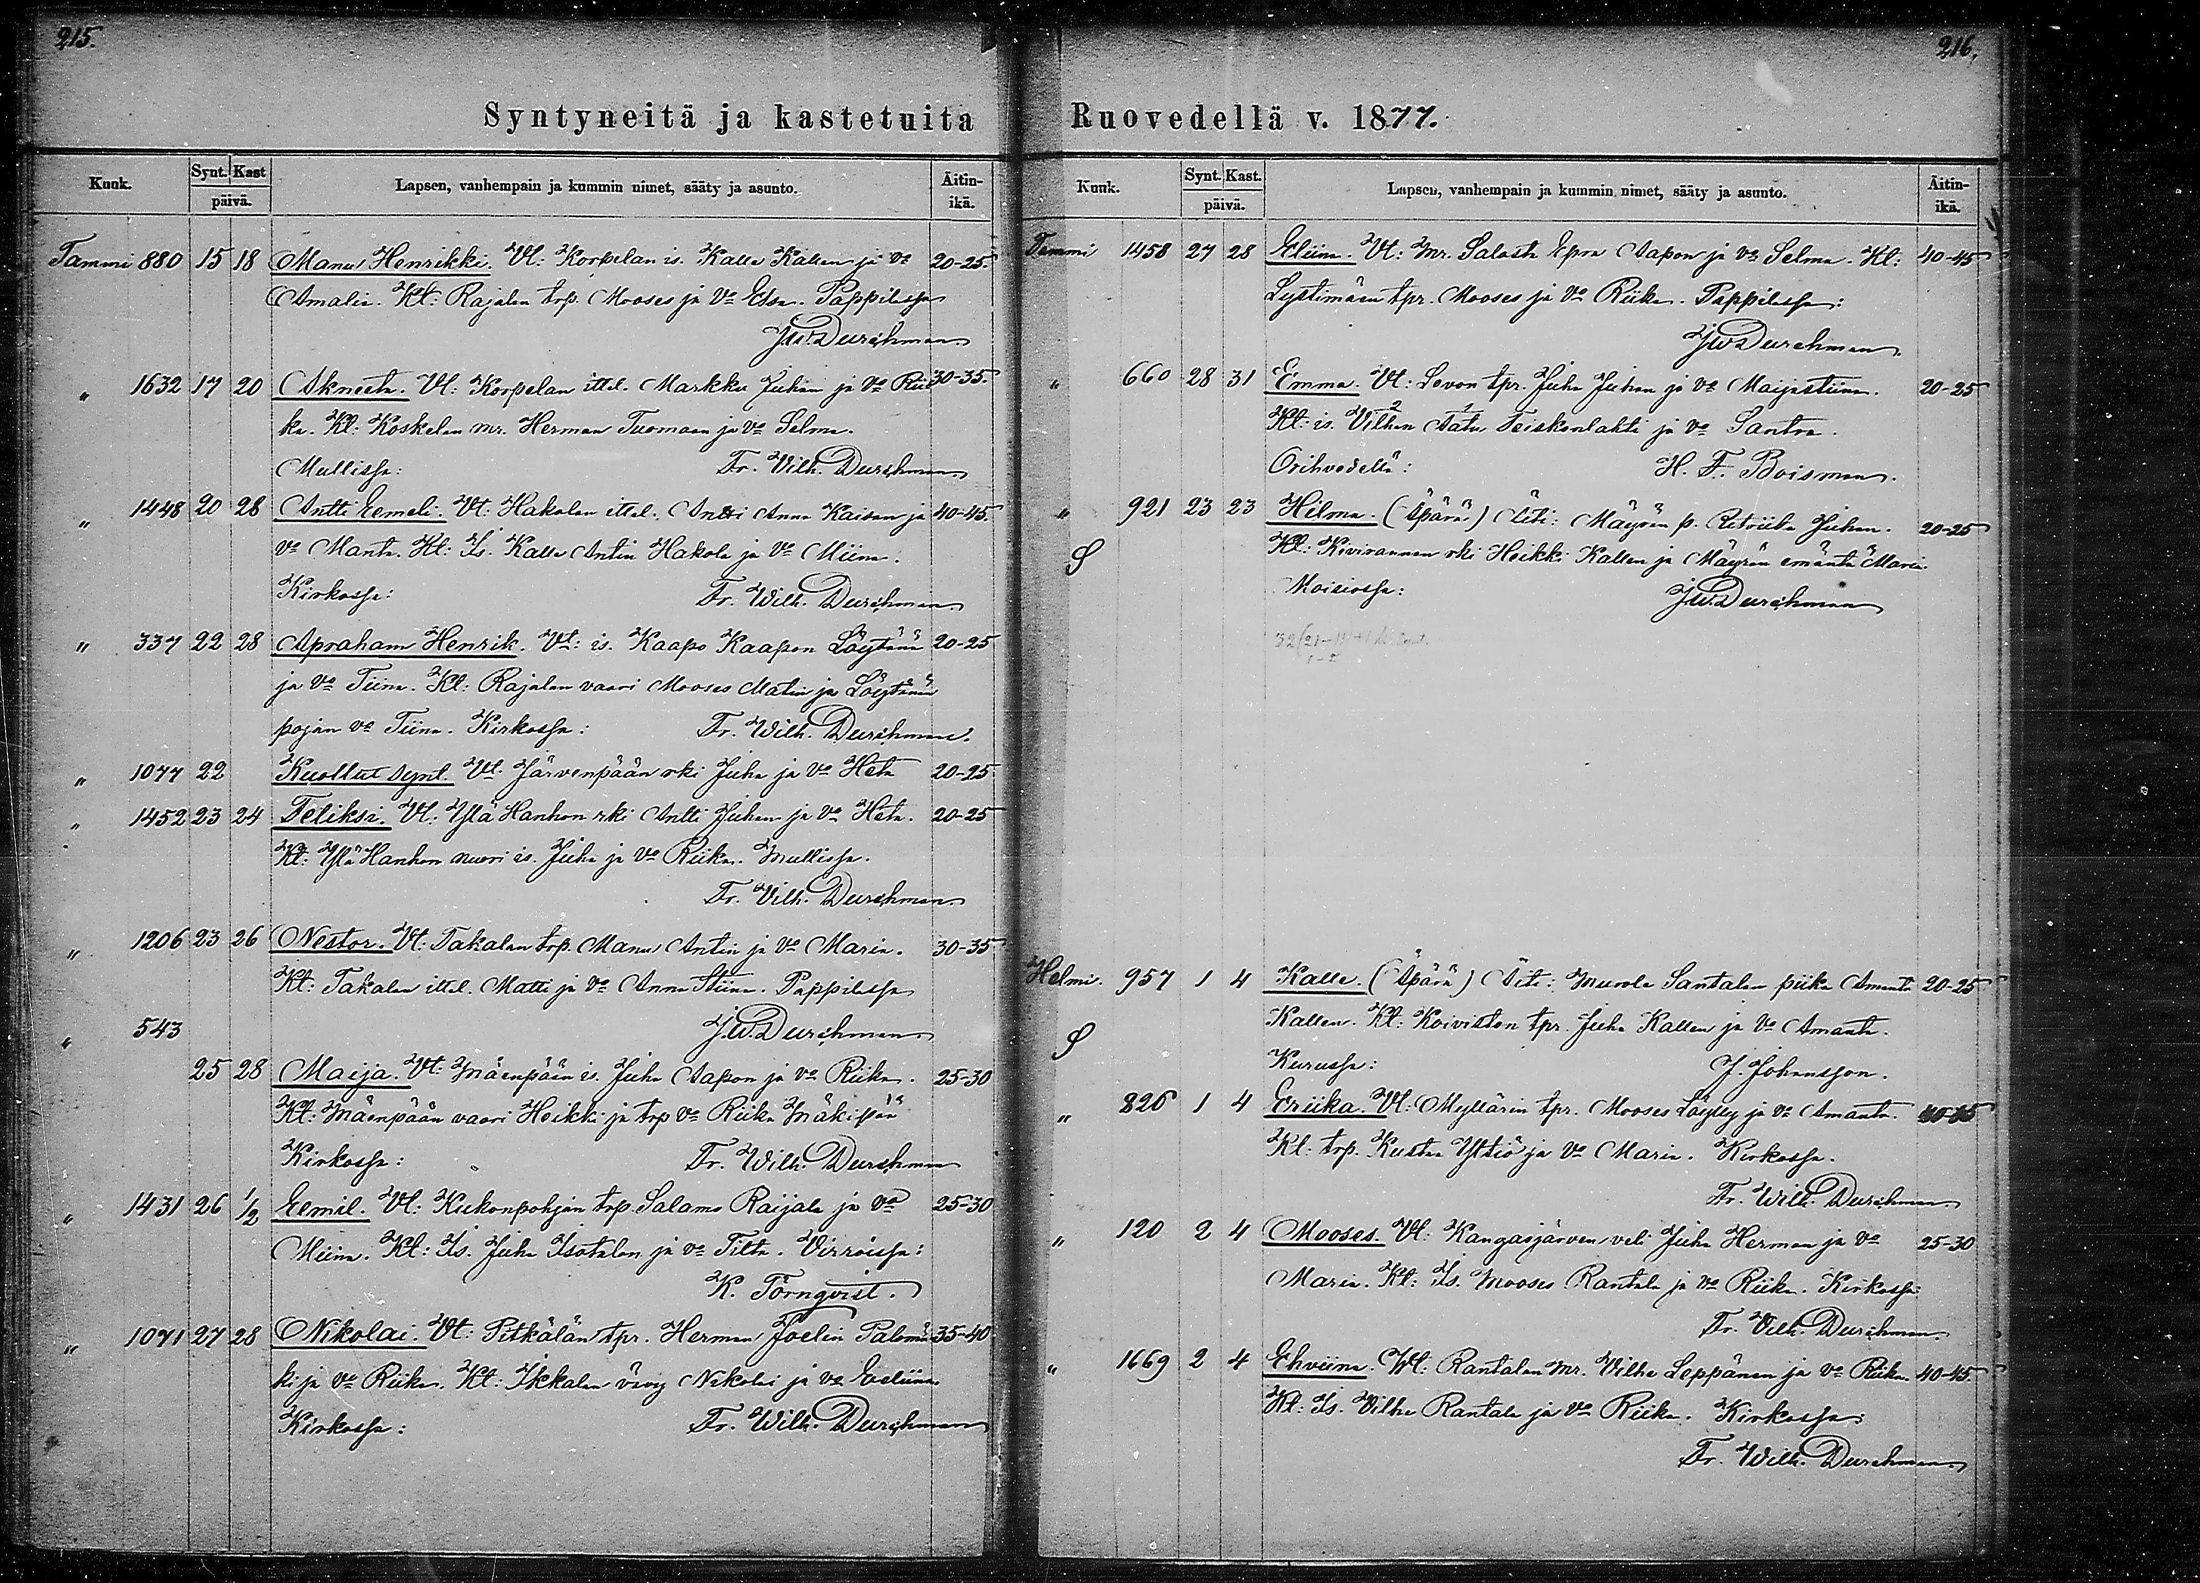 215.
Syntyneitä ja kastetuita
Kuuk. Synt. Kast päivä. Lapsen, vanhempain ja kummin nimet, sääty ja asunto. Äitin-ikä.
Tammi 880 15 18 Manu Henrikki. Vt: Korpelan is. Kalle Kallen ja vo 20-25.
Amalia. Kt: Rajalan trp. Mooses ja Vo Elsa. Pappilassa
J.W. Durchman
" 1632 17 20 Akneeta. Vt: Korpelan ittel. Markku Juhan ja Vo Rii 30-35.
ka. Kt: Koskelan mr. Herman Tuomaan ja Vo Selma.
Mullissa: Fr. Vilh. Durchman
" 1448 20 28 Antti Eemeli. Vt: Hakalan ittel. Antti Anna Kaisan ja 40-45.
Vo Manta. Kt: Is. Kalle Antin Hakola ja Vo Miina.
Kirkossa: Fr. Wilh. Durchman
" 337 22 28 Apraham Henrik. Vt: is. Kaapo Kaapon Löytänä 20-25
ja Vo Tiina. Kt: Rajalan vaari Mooses Matin ja Löytänän
pojan vo Tiina. Kirkossa: Fr. Wilh. Durchman.
" 1077 22 Kuollut synt. Vt: Järvenpään rki Juha ja Vo Heta 20-25
" 1452 23 24 Feliksi. Vt: Ylä Hanhon rki Antti Juhan ja Vo Heta. 20-25
Kt: Ylä Hanhon nuori is. Juha ja Vo Riika. Mullissa.
Fr. Vilh. Durchman
" 1206 23 26 Nestor. Vt: Takalan trp. Manu Antin ja Vo Maria. 30-35
Kt: Takalan ittel. Matti ja Vo Anna Stiina. Pappilassa
" 543 J.W. Durchman
25 28 Maija. Vt: Mäenpään is. Juha Aapon ja Vo Riika. 25-30
Kt: Mäenpään vaari Heikki ja trp vo Riika Mäkipää
Kirkossa: Fr. Wilh. Durchman
" 1431 26 1/2 Eemil. Vt: Kukonpohjan trp. Salamo Raijala ja Vo 25-30
Miina. Kt: Is. Juha Isotalon ja vo Tilta. Virroissa:
K. Törnqvist.
" 1071 27 28 Nikolai. Vt: Pitkälän tpr. Herman Joelin Palomä 35-40
ki ja Vo Riika. Kt: Ikkalan Nikolai ja Vo Eveliina
Kirkossa: Fr. Wilh. Durchman
216.
Ruovedellä v. 1877.
Kuuk. Synt. Kast. päivä. Lapsen, vanhempain ja kummin nimet, sääty ja asunto. Äitin-ikä.
Tammi 1458 27 28 Eliina. Vt: Mr. Salosta Epra Aapon ja Vo Selma. Kt: 40-45
Lystimäen tpr. Mooses ja Vo Riika. Pappilassa:
J W Durchman
" 660 28 31 Emma. Vt: Sovon tpr. Juha Juhan ja Vo Maijastiina. 20-25
Kt: is. Vilhen Aatu Teiskonlahti ja Vo Santra.
Orihvedellä: H. F. Boisman.
" 921 23 23 Hilma. (Äpärä) Äiti: Mäyrän p. Retriika Juhan. 20-25
S Kt: Kivirannan rki Heikki Kallen ja Mäyrän emäntä Maria
Moisiossa: J.W. Durchman
Helmi. 957 1 4 Kalle. (Äpärä) Äiti: Murole Santalan piika Amanta 20-25
S Kallen. Kt: Koiviston tpr. Juha Kallen ja Vo Amanta.
Kurussa: J. Johansson.
" 826 1 4 Eriika. Vt: Myllärin tpr. Mooses Löyley ja Vo Amanta.
Kt: trp. Kustaa Yltiö ja Vo Maria. Kirkossa.
Fr. Wilh. Durchman
" 120 2 4 Mooses. Vt: Kangasjärven veli Juha Herman ja Vo 25-30
Maria. Kt: Is. Mooses Rantala ja Vo Riika. Kirkossa:
Fr. Vilh. Durchman
" 1669 2 4 Ehviina. Vt: Rantalan Mr. Vilhe Leppänen ja Vo Riika. 40-45.
Kt: Is. Vilhe Rantala ja Vo Riika. Kirkossa:
Fr. Wilh. Durchman